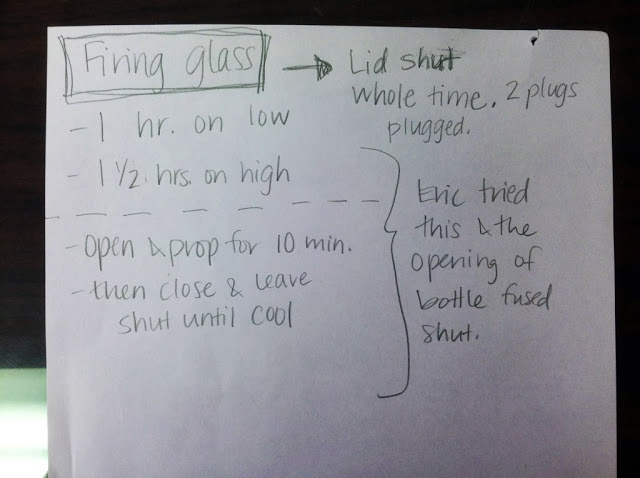 Firing glass → Lid shut
whole time. 2 plugs
plugged.
- 1 hr. on low
- 1 1/2 hrs. on high
- open & prop for 10 min.
- then close & leave
shut until cool
Eric tried
this & the
opening of
bottle fused
shut.